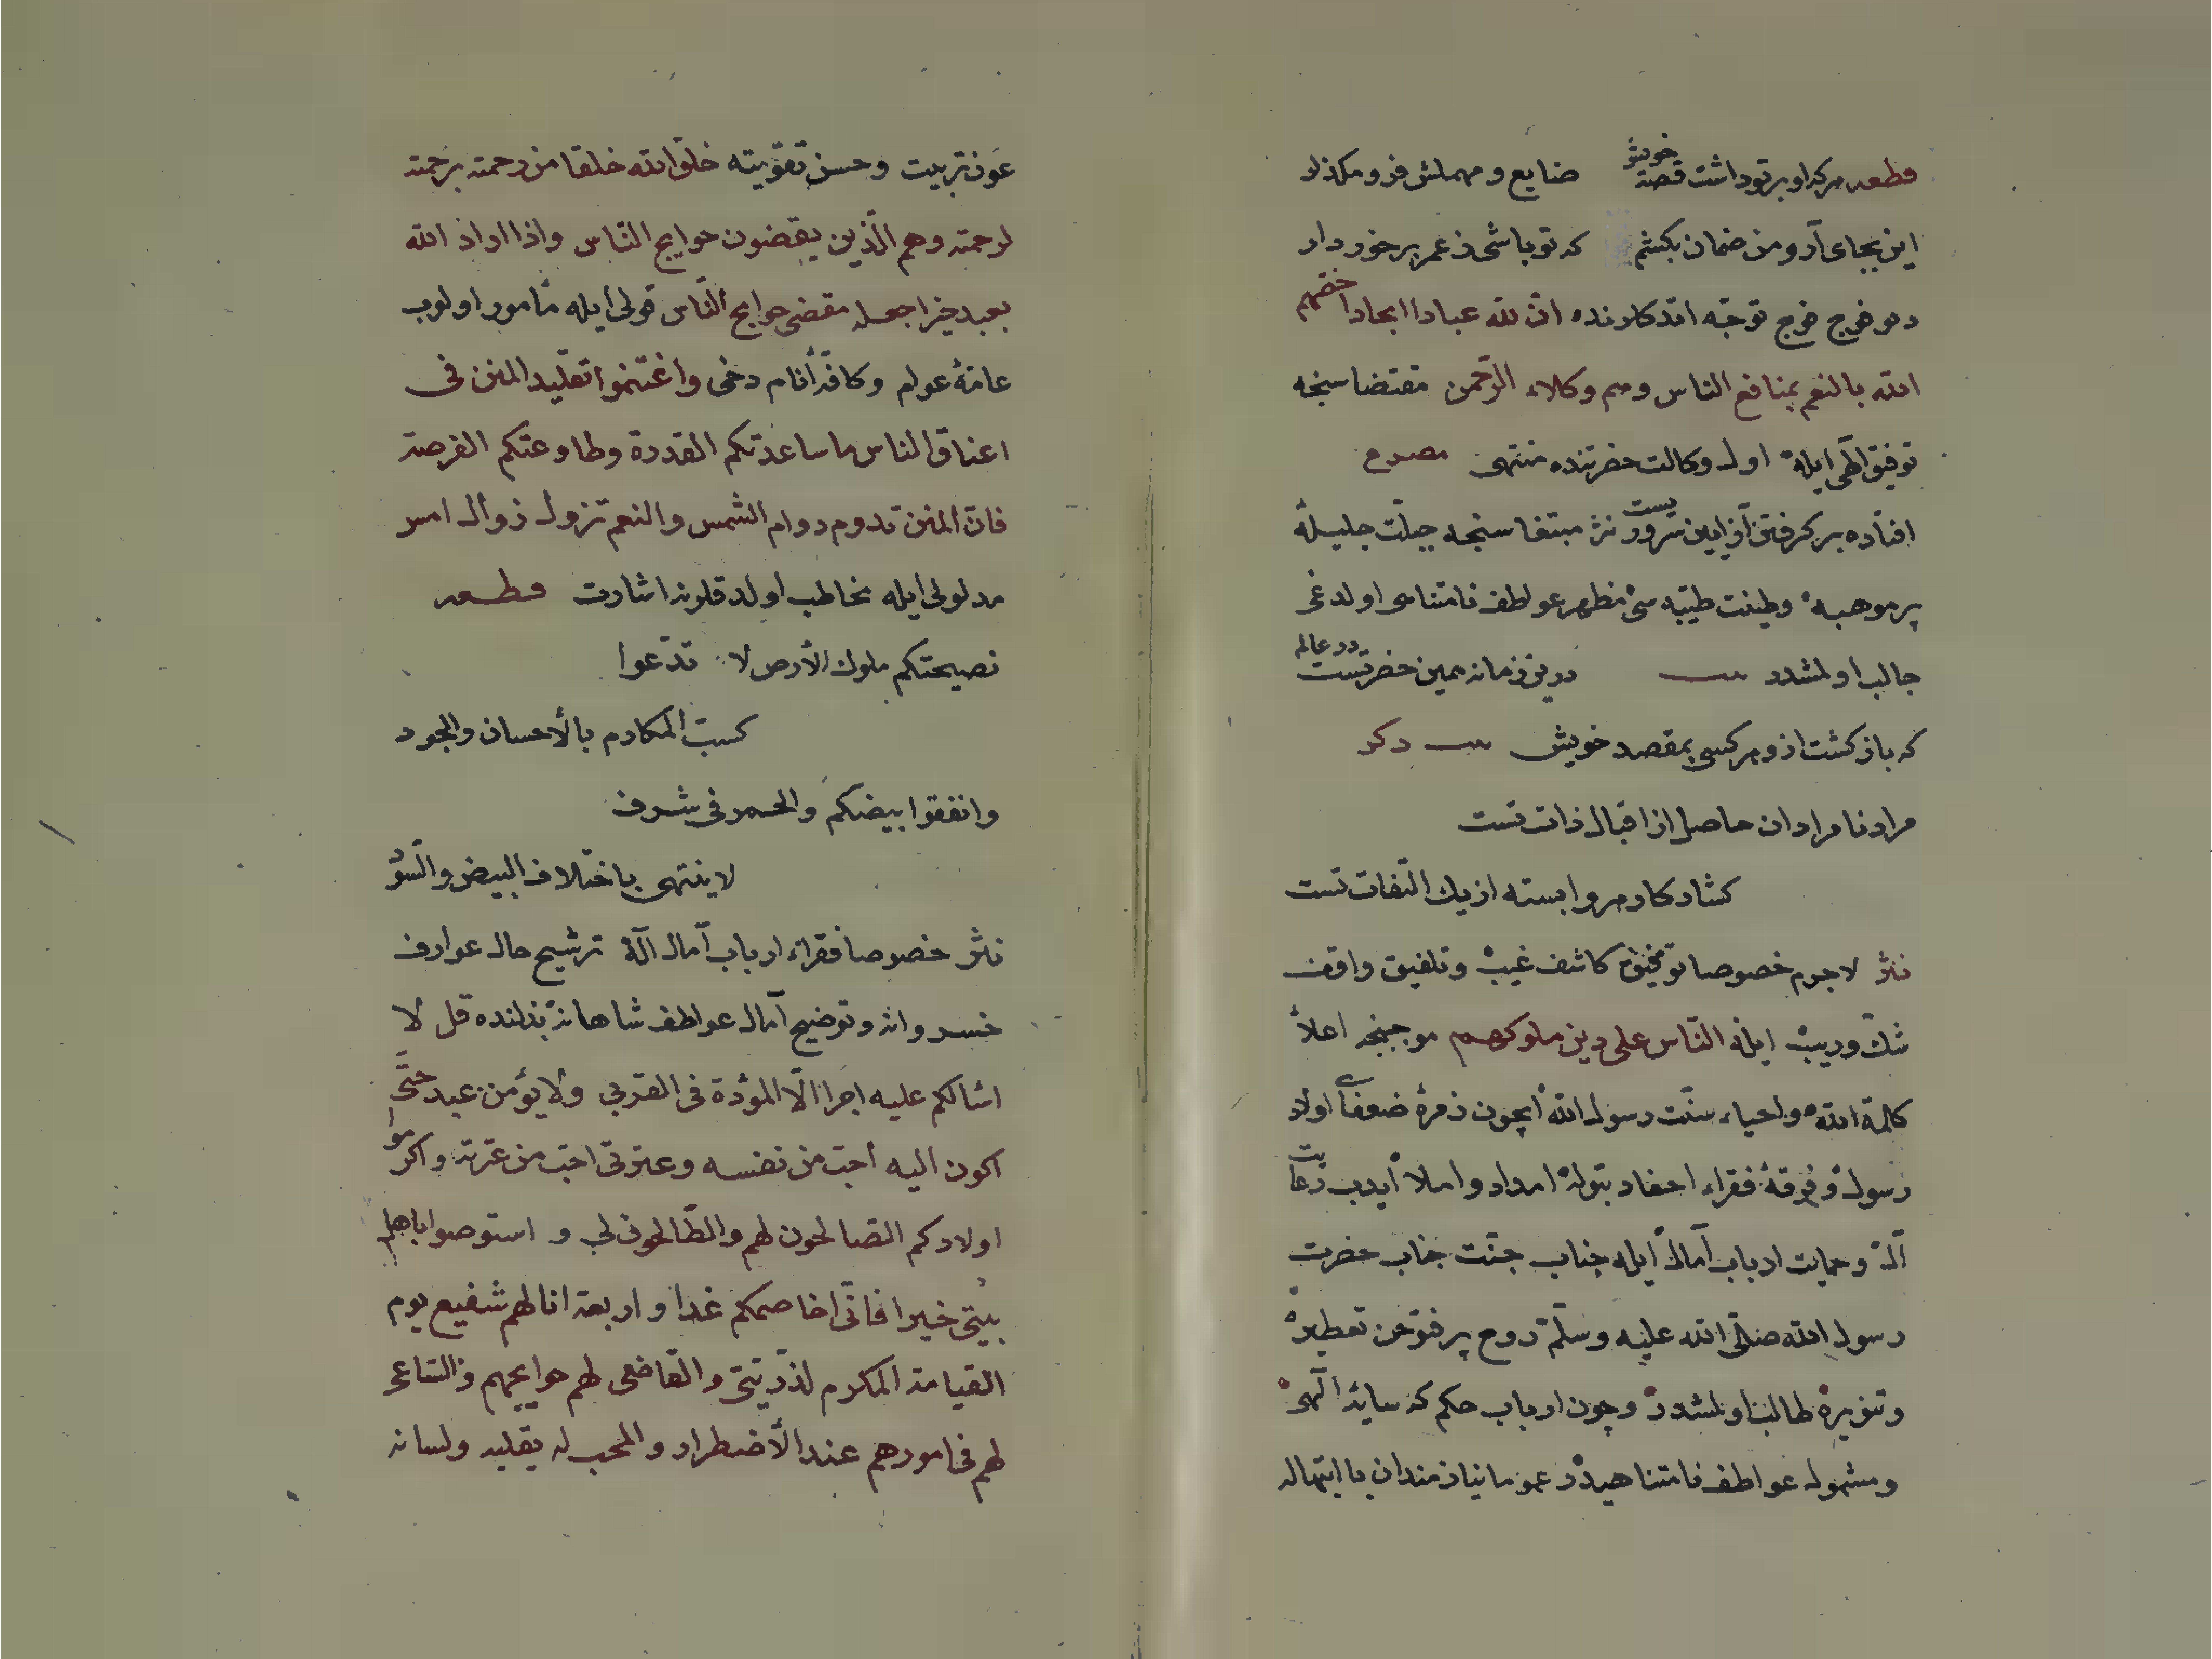 قطعه هركه او برتو داشت قصهٔ خويش ضايع و مهملش فرو مكذار
اين بجاى آر ومن ضمان بكشم كه تو باشى ز عمر برخوردار
دمو فرج فرج توجه اتدكارنده ان لله عبادا ابجادا اخصهم
الله بالنعم بمنافع الناس وهم وكلاء الرحمن مقتضاسنجه
توفيق الهى ايله اول وكالت حضرتنده منتهى مصرع
افتاده بر كرفتن از ايين سروريست نثر مبتغاسنجه جبلت جليلهٔ
پرموهبه وطينت طيبه سى مظهر عواطف نامتناهى اولدغى
جالب اولمشدر بيت درين زمانه همين حضرتست در عالم
كه باز كشت ازو هركسى بمقصد خويش بيت دكر
مراد نامرادان حاصل از اقبال ذات تست
كشاد كار هر وابسته از يك التفات تست
نثر لاجرم خصوصا توفيق كاشف غيب وتلفيق واقف
شك وريب ايله الناس على دين ملوكهم موجبنجه اعلاء
كلمة الله واحياء سنت رسول الله ايچون زمرهٔ ضعفاى اولاد
رسول و فرقهٔ فقراء احفاد بتوله امداد واملا ايدب رعايت
آل وحمايت ارباب آمال ايله جناب جنت جناب حضرت
رسول الله صلى الله عليه وسلم روح پرفتوحن تعطيره
وتنويره طالب اولمشدر وچون ارباب حكم كه سايهٔ الهى
ومشمول عواطف نامتناهيدر عموما نيازمندان باابتهاله
عون تربيت وحسن تقويته خلق الله خلقا من رحمته برحمته
لرحمته وهم الذين يقضون حوايج الناس واذا اراد الله
بعبد خيرا جعله مقضى حوايج الناس قولى ايله مأمور اولوب
عامهٔ عوام وكافهٔ أنام دخى واغتنموا تقليد المنن فى
اعناق الناس ما ساعدتكم القدرة وطاوعتكم الفرصة
فان المنن تدوم دوام الشمس والنعم تزول زوال امس
مدلولى ايله مخاطب اولدقلرنه اشارت قطعه
نصيحتكم ملوك الأرض لا تدعوا
كسب المكارم بالأحسان والجود
وانفقوا بيضكم والحمر فى شرف
لاينتهى باختلاف البيض والسود
نثر خصوصا فقراء ارباب آمال آله ترشيح حال عوارف
خسروانه وتوضيح آمال عواطف شاهانه بذلنده قل لا
اسالكم عليه اجرا الا المودة فى القربى ولا يؤمن عبد حتى
اكون اليه أحب من نفسه وعترتى احب من عترته واكرموا
اولادكم الصالحون لهم والطالحون لى و استوصوا باهل
بيتى خيرا فانى اخاصمكم غدا و اربعة انا لهم شفيع يوم
القيامة المكرم لذريتى والقاضى لهم حوايجهم والساعى
لهم فى امورهم عند الأضطرار والمحب له بقلبه ولسانه